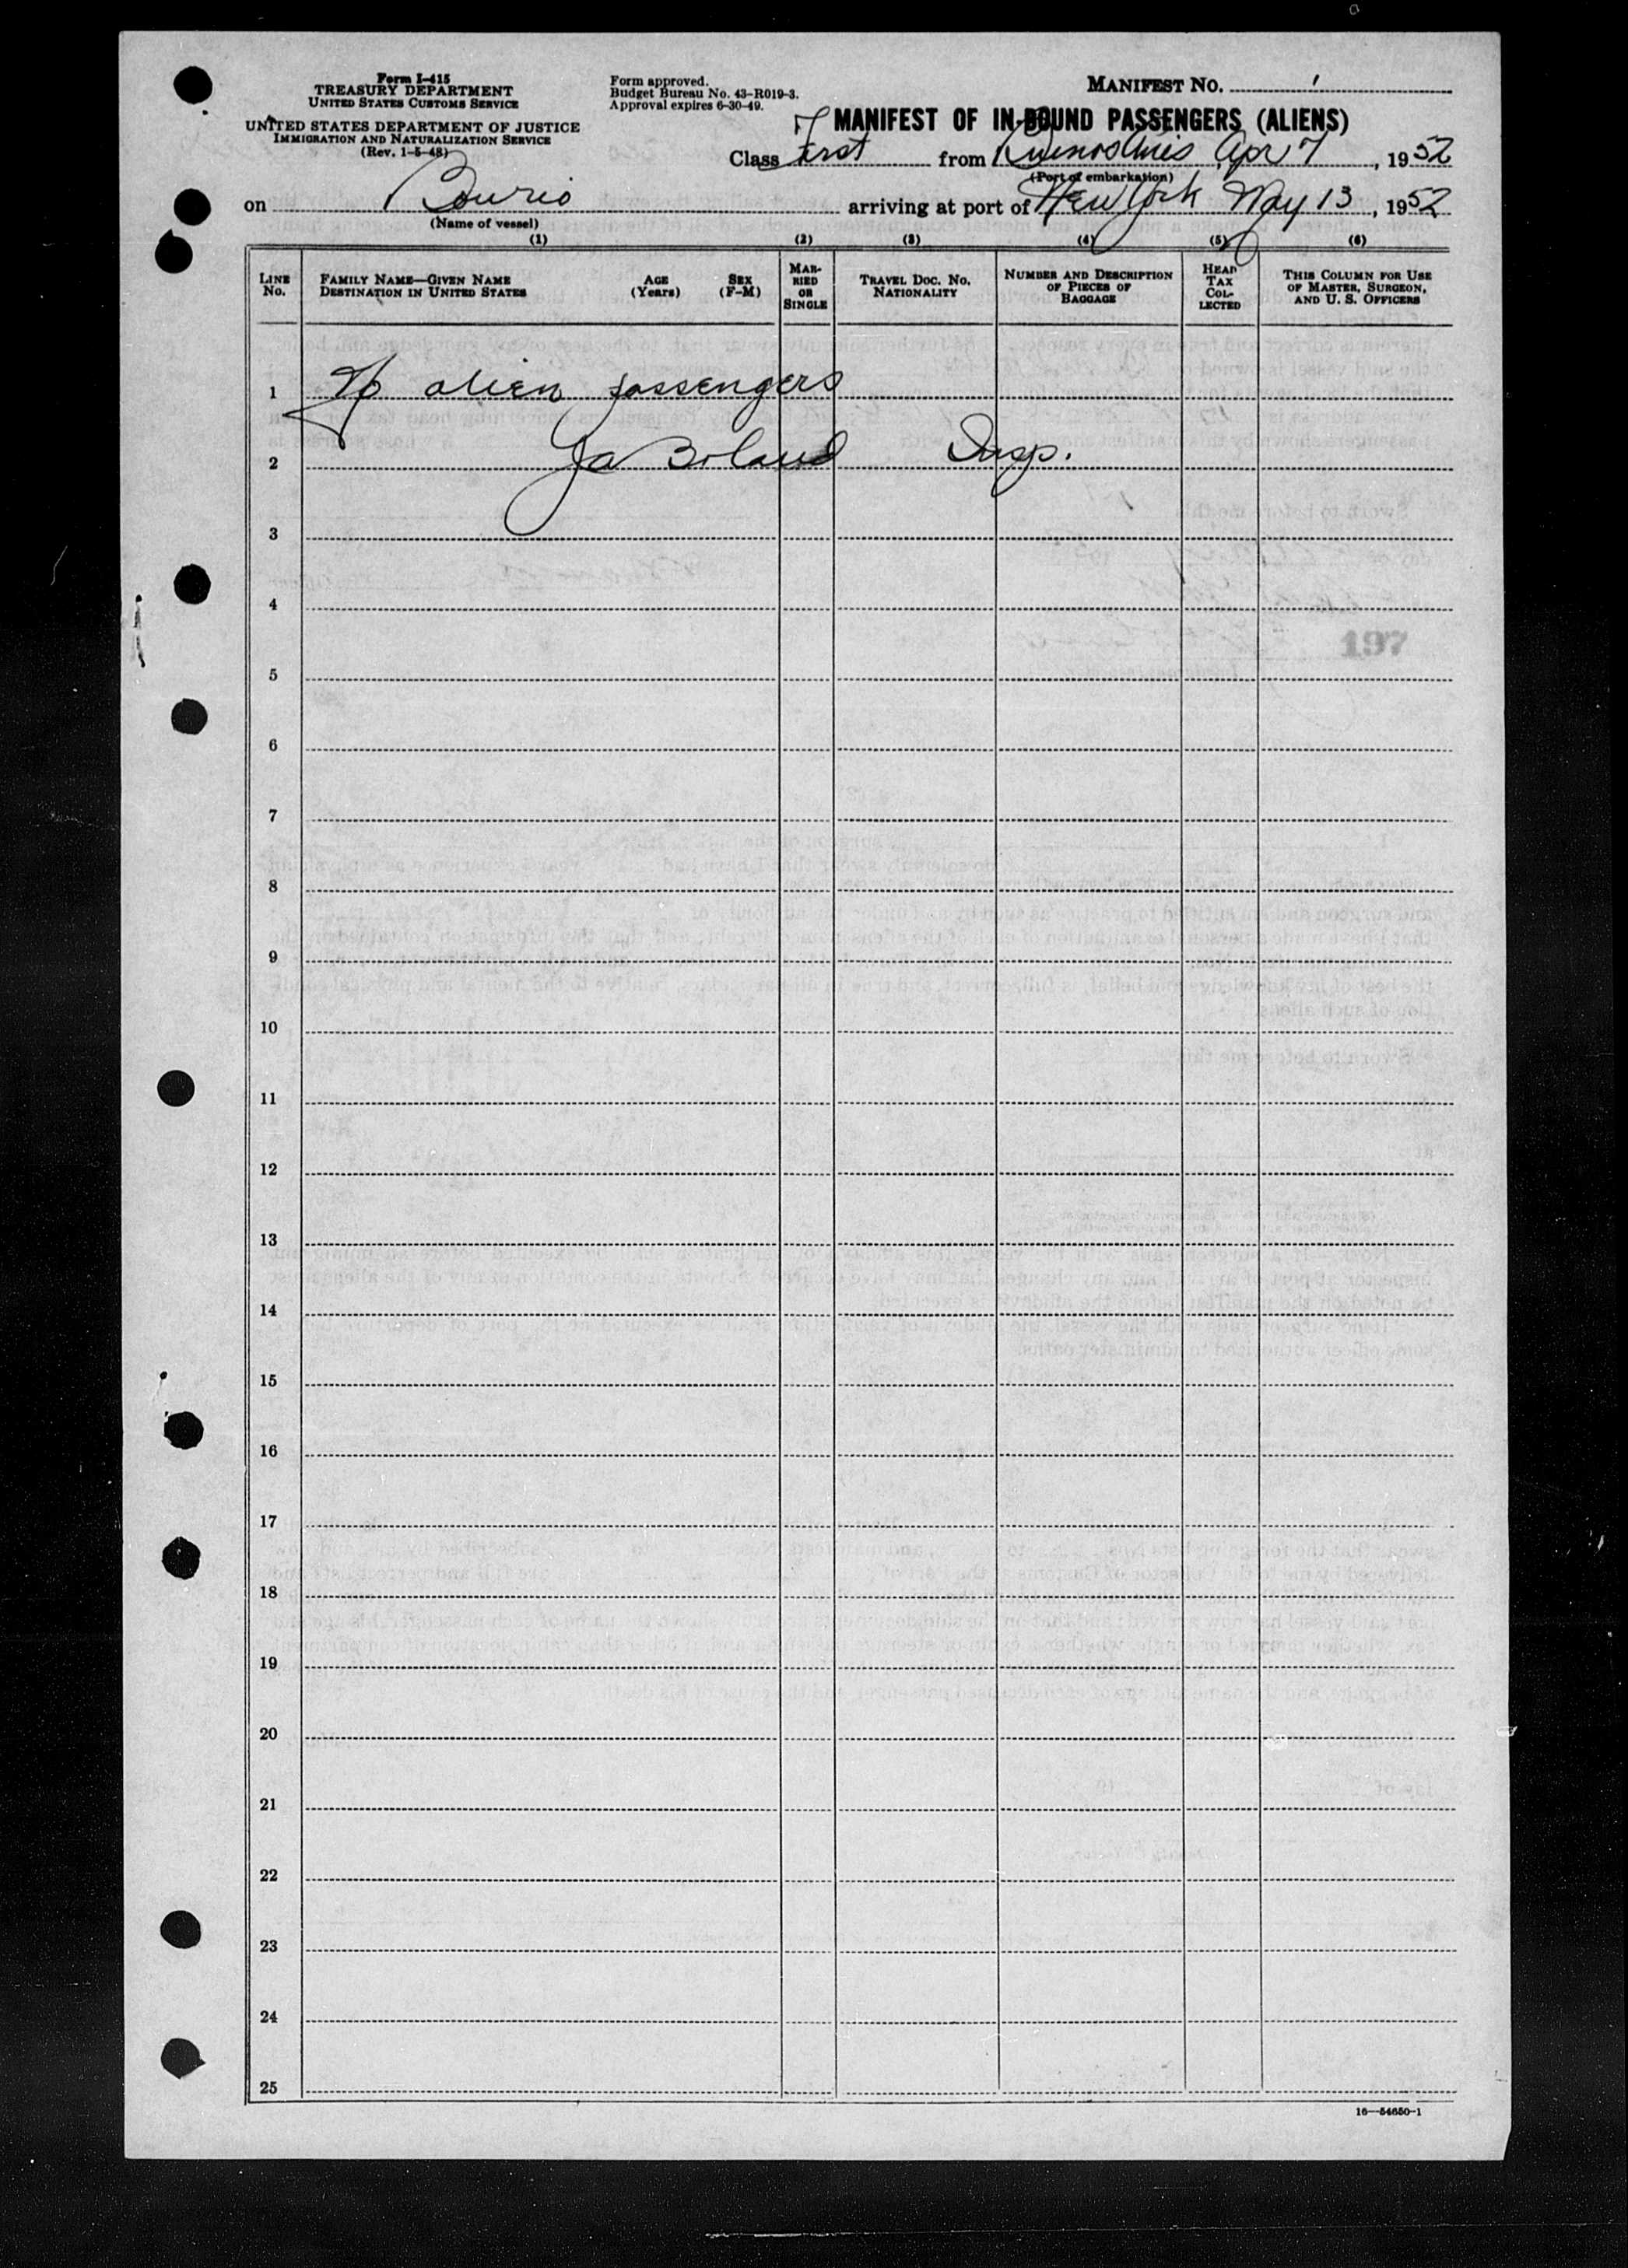 Form I-415
TREASURY DEPARTMENT
UNITED STATES CUSTOMS SERVICE
UNITED STATES DEPARTMENT OF JUSTICE
IMMIGRATION AND NATURALIZATION SERVICE
(Rev. 1-5-48)
Form approved.
Budget Bureau No. 43-R019-3.
Approval expires 6-30-49.
MANIFEST NO. 1
MANIFEST OF IN-BOUND PASSENGERS (ALIENS)
Class First from Buenos Aires, Apr 7, 1952
(Port of embarkation)
on arriving at port of New York May 13, 1952
(Name of vessel)
(1) (2) (3) (4) (5) (6)
LINE No.
FAMILY NAME—GIVEN NAME
DESTINATION IN UNITED STATES
AGE (Years)
SEX (F-M)
MARRIED OR SINGLE
TRAVEL DOC. NO.
NATIONALITY
NUMBER AND DESCRIPTION OF PIECES OF BAGGAGE
HEAD TAX COLLECTED
THIS COLUMN FOR USE OF MASTER, SURGEON, AND U. S. OFFICERS
1 No alien passengers
2 Ja Boland Insp.
3
4
197
5
6
7
8
9
10
11
12
13
14
15
16
17
18
19
20
21
22
23
24
25
16—54650-1